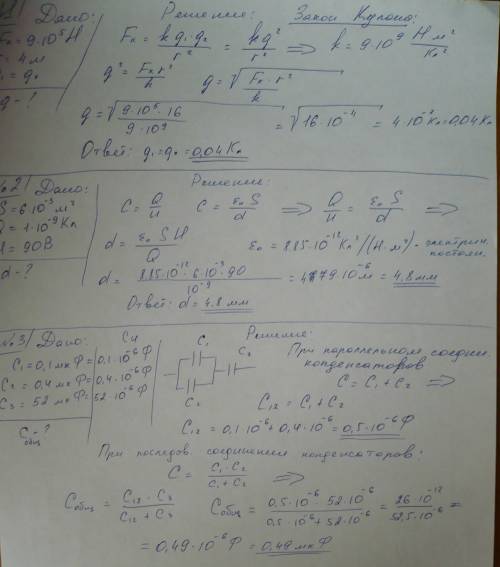 Дано:
Решение:
Закон Кулона:
Fк = 9·10⁵ Н
r = 4м
q₁ = q₂
q - ?
Fк = k q₁·q₂ / r² = kq² / r² ⟹ k = 9·10⁹ Н·м² / Кл²
q² = Fк r² / k q = √(Fк·r² / k)
q = √(9·10⁵·16 / 9·10⁹) = √(16·10⁻⁴) = 4·10⁻² Кл = 0,04 Кл
Ответ: q₁ = q₂ = 0,04 Кл
№2/ Дано:
Решение:
S = 6·10⁻³ м²
Q = 1·10⁻⁹ Кл
U = 90В
d - ?
C = Q / U C = ε₀ S / d ⟹ Q / U = ε₀ S / d ⟹
d = ε₀ S U / Q ε₀ = 8.85·10⁻¹² Кл² / (Н·м²) - электрич. постоян.
d = 8.85·10⁻¹²·6·10⁻³·90 / 10⁻⁹ = 4779·10⁻⁶ м = 4.8 мм
Ответ: d = 4.8 мм
№3/ Дано:
Си
Решение:
C₁ = 0,1 мкФ = 0,1·10⁻⁶ Ф
C₂ = 0,4 мкФ = 0,4·10⁻⁶ Ф
C₃ = 52 мкФ = 52·10⁻⁶ Ф
Cобщ - ?
C₁
C₃
C₂
При параллельном соедин.
конденсаторов
C = C₁ + C₂ ⟹
C₁₂ = C₁ + C₂
C₁₂ = 0,1·10⁻⁶ + 0,4·10⁻⁶ = 0,5·10⁻⁶ Ф
При последов. соединении конденсаторов:
C = C₁·C₂ / C₁ + C₂ ⟹
Cобщ = C₁₂·C₃ / C₁₂ + C₃ Cобщ = 0,5·10⁻⁶·52·10⁻⁶ / 0,5·10⁻⁶ + 52·10⁻⁶ = 26·10⁻¹² / 52,5·10⁻⁶ =
= 0,49·10⁻⁶ Ф = 0,49 мкФ